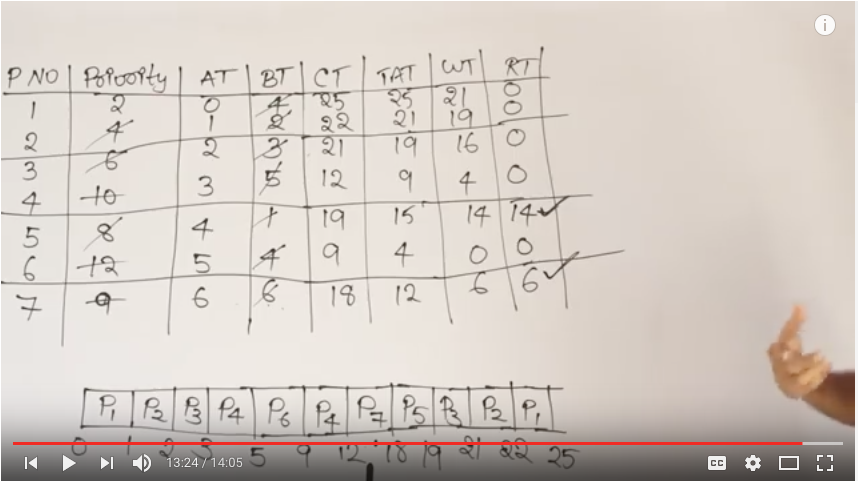 P NO Priority AT BT CT TAT WT RT
1 2 0 4 25 25 21 0
2 4 1 2 22 21 19 0
3 6 2 3 21 19 16 0
4 10 3 5 12 9 4 0
5 8 4 1 19 15 14 14 ✓
6 12 5 4 9 4 0 0
7 9 6 6 18 12 6 6 ✓
P1 P2 P3 P4 P6 P4 P7 P5 P3 P2 P1
0 1 2 3 5 9 12 18 19 21 22 25
13:24 / 14:05
CC